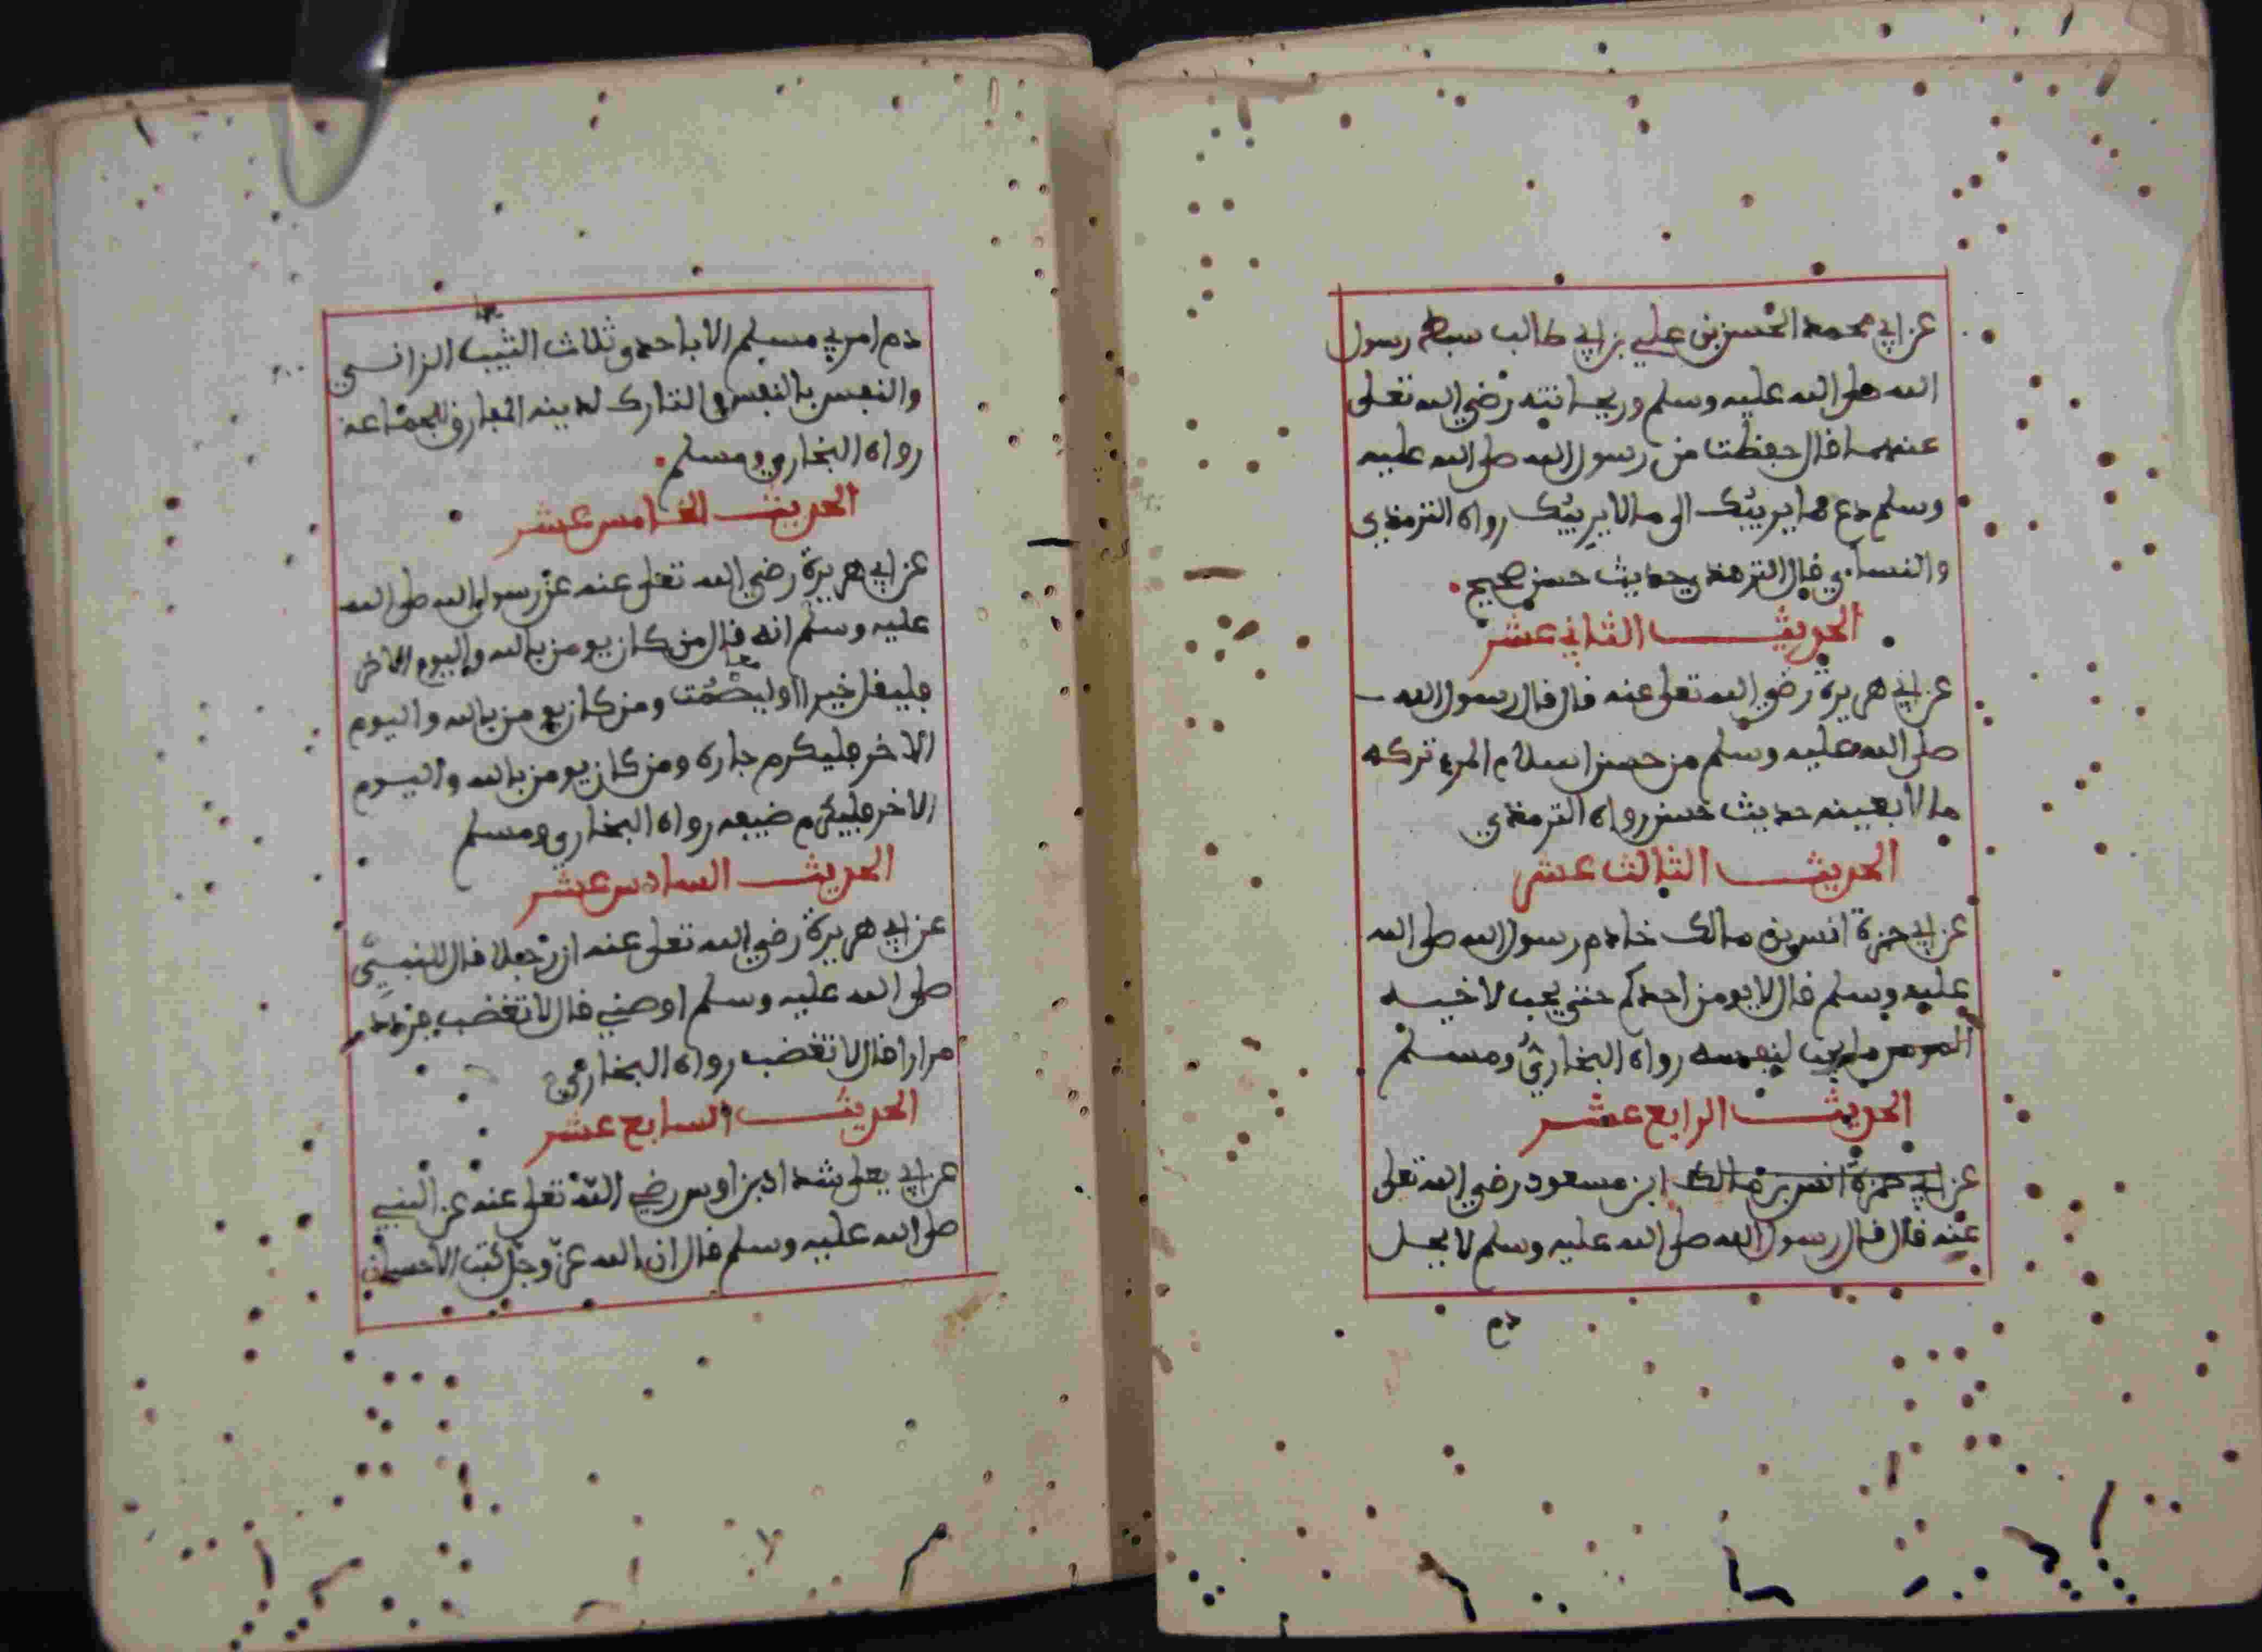 عن ابي محمد الحسن بن علي بن ابي طالب سبط رسول
الله صلى الله عليه وسلم وريحانته رضي الله تعلى
عنهما قال حفظت من رسول الله صلى الله عليه
وسلم دع ما يريبك الى ما لا يريبك رواه الترمذي
والنساءي قال الترمذي حديث حسن صحيح
الحديث الثاني عشر
عن ابي هريرة رضي الله تعلى عنه قال قال رسول الله
صلى الله عليه وسلم من حسن اسلام المرء تركه
ما لا يعنيه حديث حسن رواه الترمذي
الحديث الثالث عشر
عن ابي حمزة انس بن مالك خادم رسول الله صلى الله
عليه وسلم قال لا يومن احدكم حتى يحب لاخيه
المومن ما يحب لنفسه رواه البخاري ومسلم
الحديث الرابع عشر
عن ابي حمزة انس بن مالك ابن مسعود رضي الله تعلى
عنه قال قال رسول الله صلى الله عليه وسلم لا يحل
دم
دم امرىء مسلم الا باحدى ثلاث الثيب الزاني
والنفس بالنفس والتارك لدينه المفارق للجماعة
رواه البخاري ومسلم
الحديث الخامس عشر
عن ابي هريرة رضي الله تعلى عنه عن رسول الله صلى الله
عليه وسلم انه قال من كان يومن بالله واليوم الاخر
فليقل خيرا او ليصمت ومن كان يومن بالله واليوم
الاخر فليكرم جاره ومن كان يومن بالله واليوم
الاخر فليكرم ضيفه رواه البخاري ومسلم
الحديث السادس عشر
عن ابي هريرة رضي الله تعلى عنه ان رجلا قال للنبيء
صلى الله عليه وسلم اوصني قال لا تغضب فردد
مرارا قال لا تغضب رواه البخاري
الحديث السابع عشر
عن ابي يعلى شداد بن اوس رضي الله تعلى عنه عن النبي
صلى الله عليه وسلم قال ان الله عز وجل كتب الاحسان